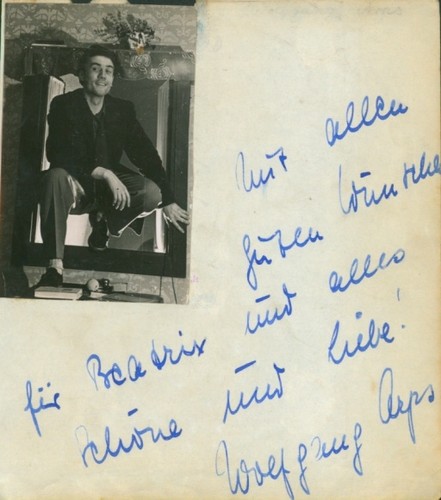 Mit allen
guten Wünschen
für Beatrix und alles
Schöne und Liebe!
Wolfgang Arps